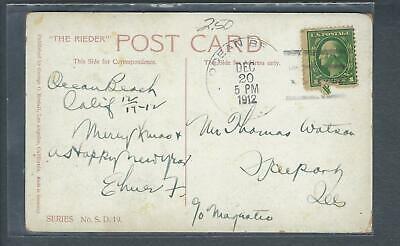 2.50
"THE RIEDER" POST CARD
This Side for Correspondence. This Side for Address only.
Published by George O. Restall, Los Angeles, California. Made in Germany
OCEAN BE
DEC
20
5 PM
1912
U.S. POSTAGE
Ocean Beach
Calif 12/17-12
Merry Xmas &
a Happy New Year
Elmer F.
Mr Thomas Watson
Freeport
Ills
c/o Magnatio
SERIES No. S. D. 19.